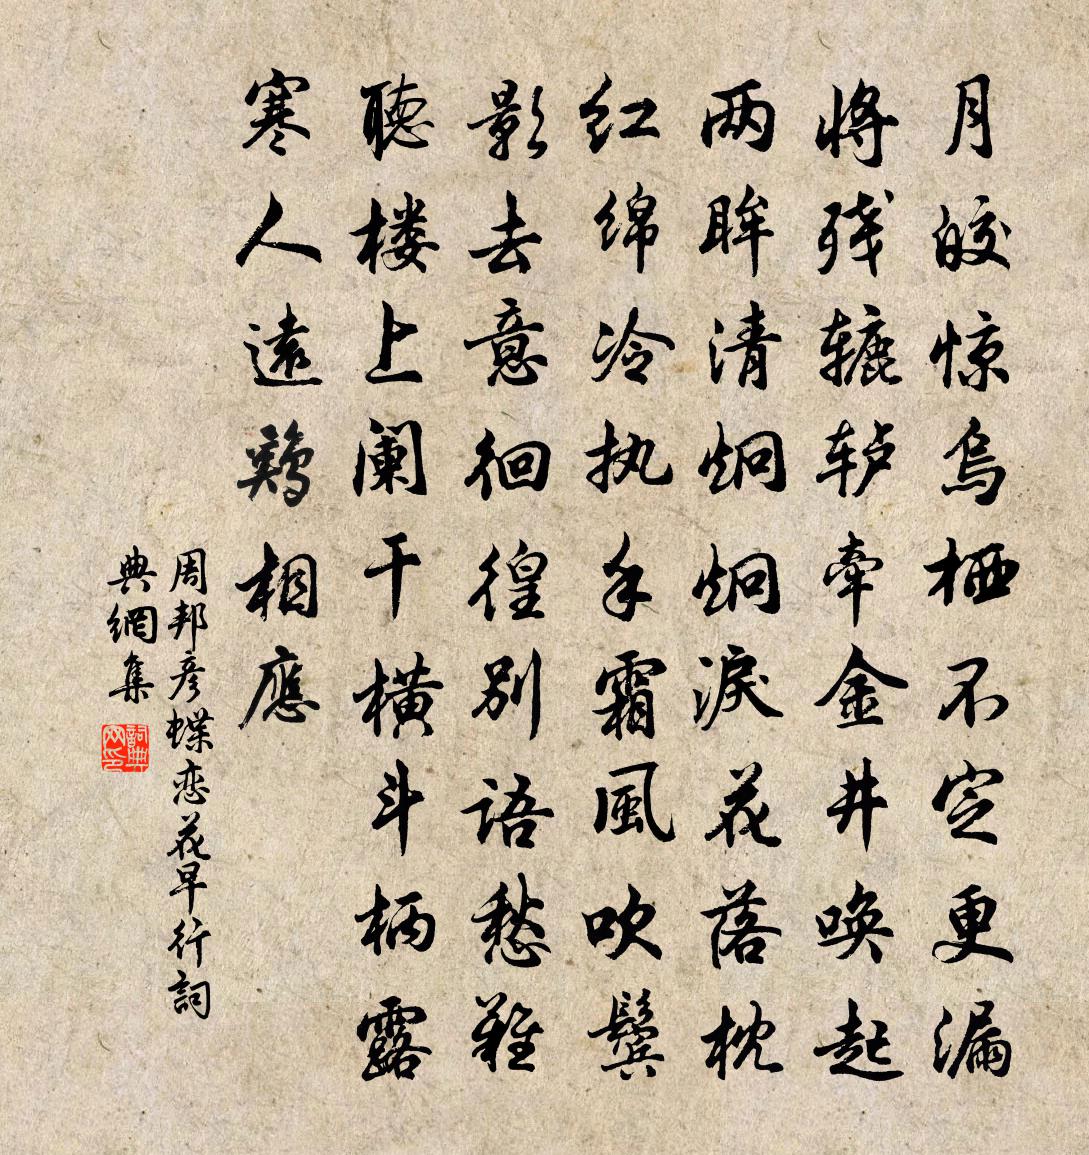 月皎惊乌栖不定更漏
将残辘轳牵金井唤起
两眸清炯炯淚花落枕
红绵冷执手霜風吹鬓
影去意徊徨别語愁難
聽楼上阑干横斗柄露
寒人遠鷄相應
周邦彦蝶恋花早行詞
典網集
詞典
网印